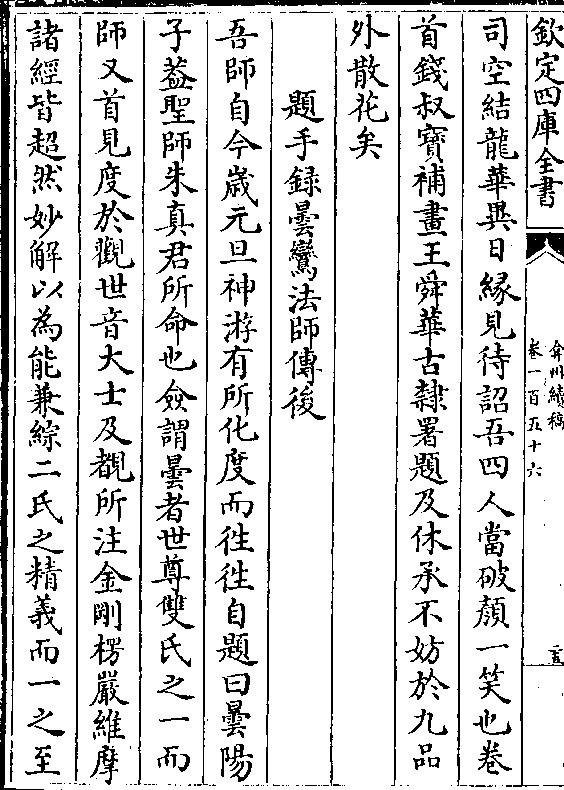 欽定四庫全書
弇州續稿
卷一百五十六
司空結龍華異日縁見待詔吾四人當破顔一笑也卷
首錢叔寳補畫王舜華古隸署題及休承不妨於九品
外散花矣
題手録曇鸞法師傳後
吾師自今嵗元旦神游有所化度而徃徃自題曰曇陽
子葢聖師朱真君所命也僉謂曇者世尊雙氏之一而
師又首見度於觀世音大士及覩所注金剛楞嚴維摩
諸經皆超然妙解以為能兼綜二氏之精義而一之至